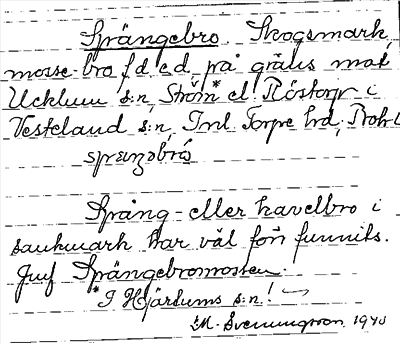 Spångebro. Skogsmark,
mosse bro f d e d, på gräns mot
Ucklum s:n, Ström* el. Röstorp i
Vesteland s:n, Inl Torpe hd, Boh. l
spångəbro
Spång- eller kavelbro i
sankmark har väl förr funnits.
Jmf Spångebromossen.
* I Hjärtums s:n!
M. Svenungsson 1940